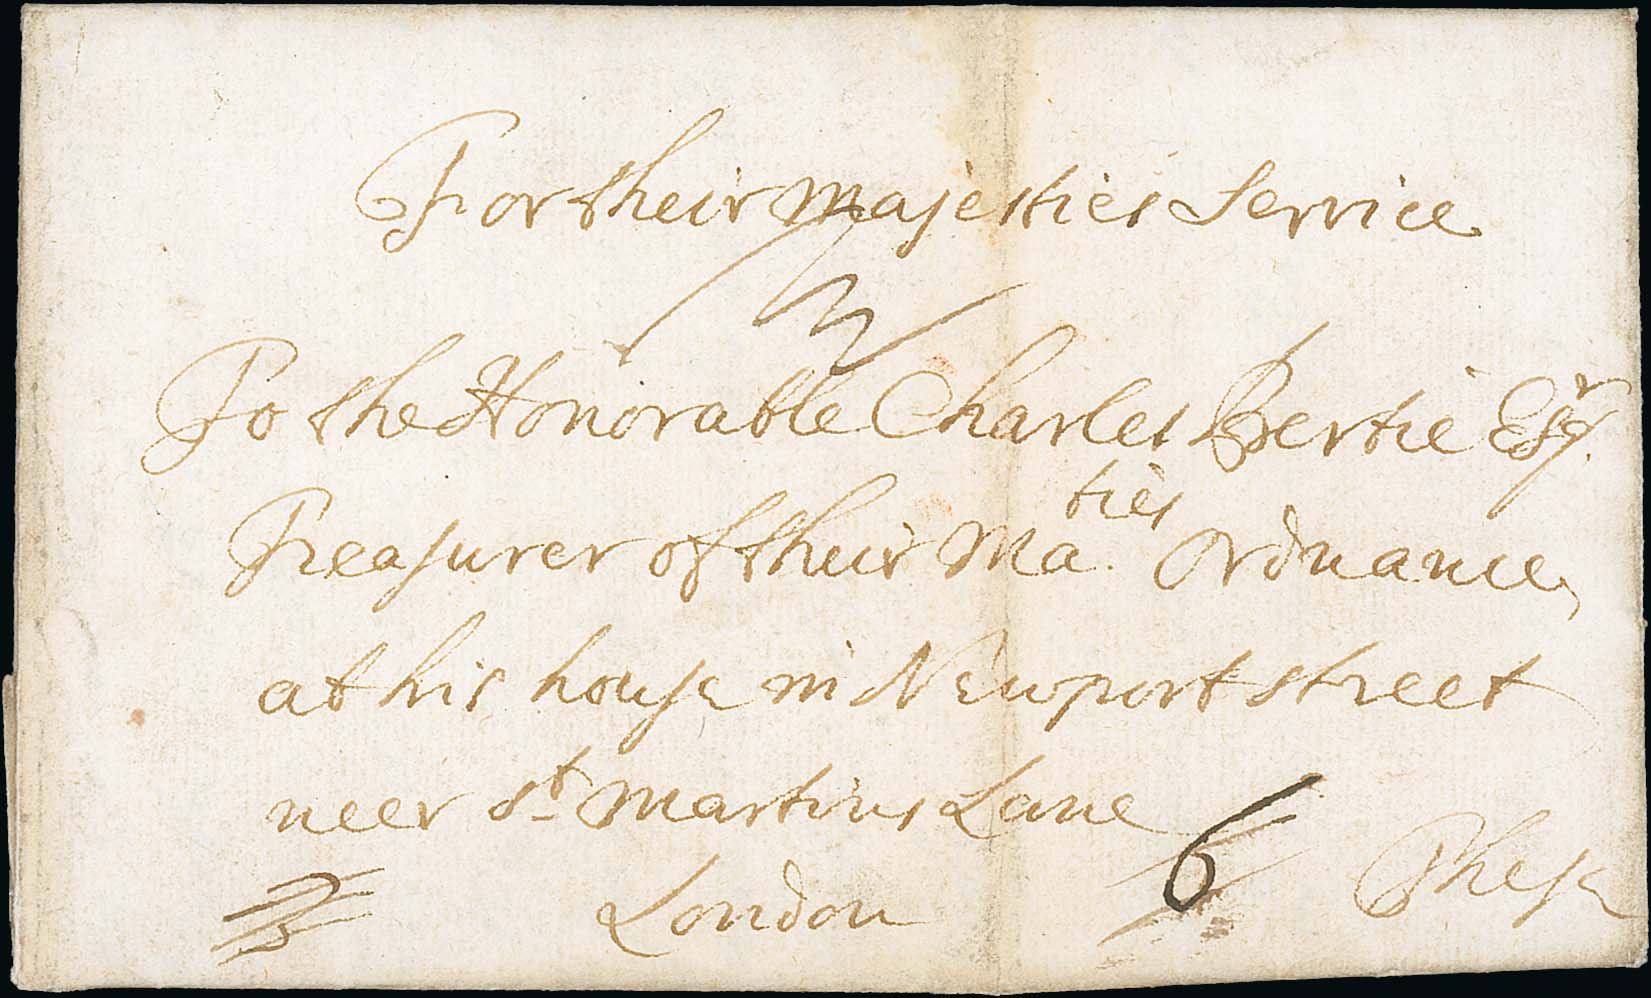 For their Majesties Service
To the Honorable Charles Bertie Esqr.
Treasurer of their Ma.ties Ordnance,
at his house in Newport street
neer St Martins Lane
London
6